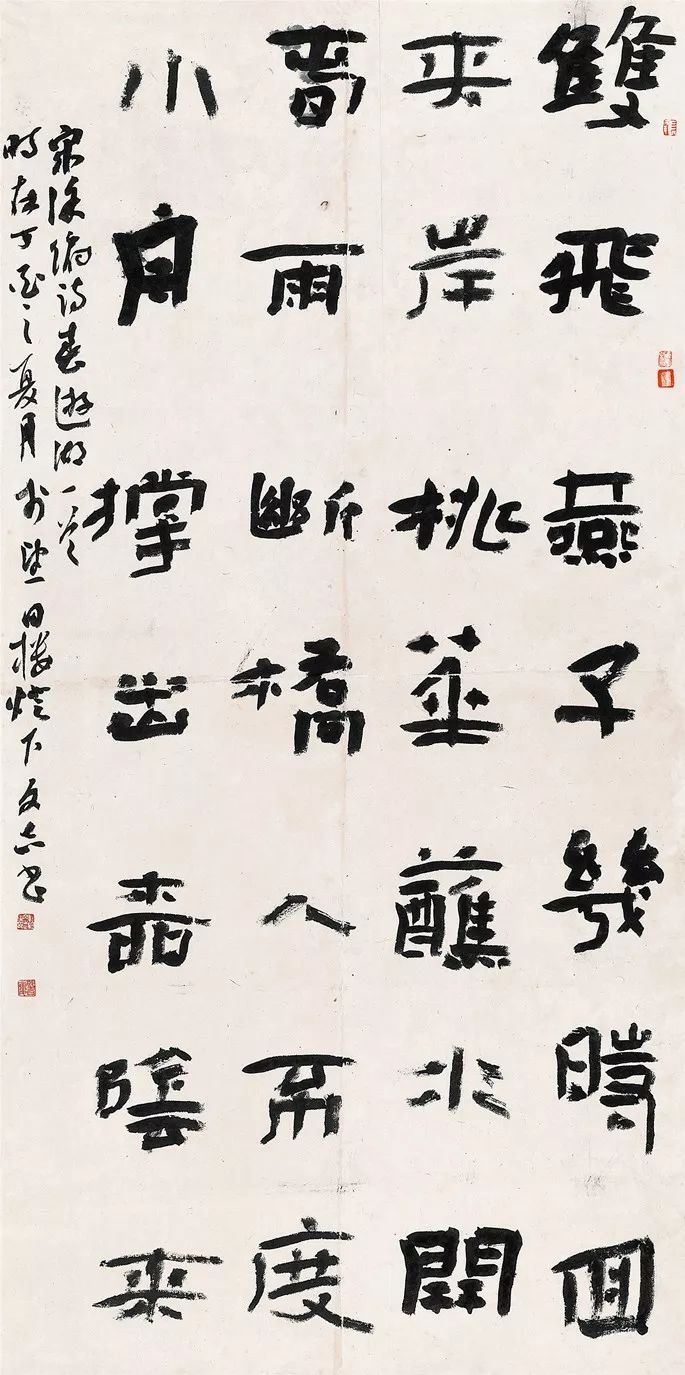 雙飛燕子幾時回
夾岸桃華蘸水開
春雨斷橋人不度
小舟撐出柳陰來
宋徐俯詩春遊湖一首
時在丁酉之夏月於望日樓燈下友志書